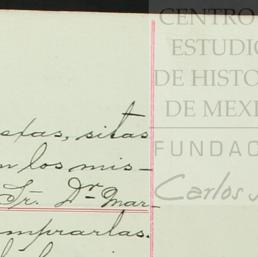 CENTRO
ESTUDIO
DE HISTOR
DE MEXI
FUNDAC
Carlos
efas, sitas
n los mis-
Sr. Dr. Mar-
mprarlas.